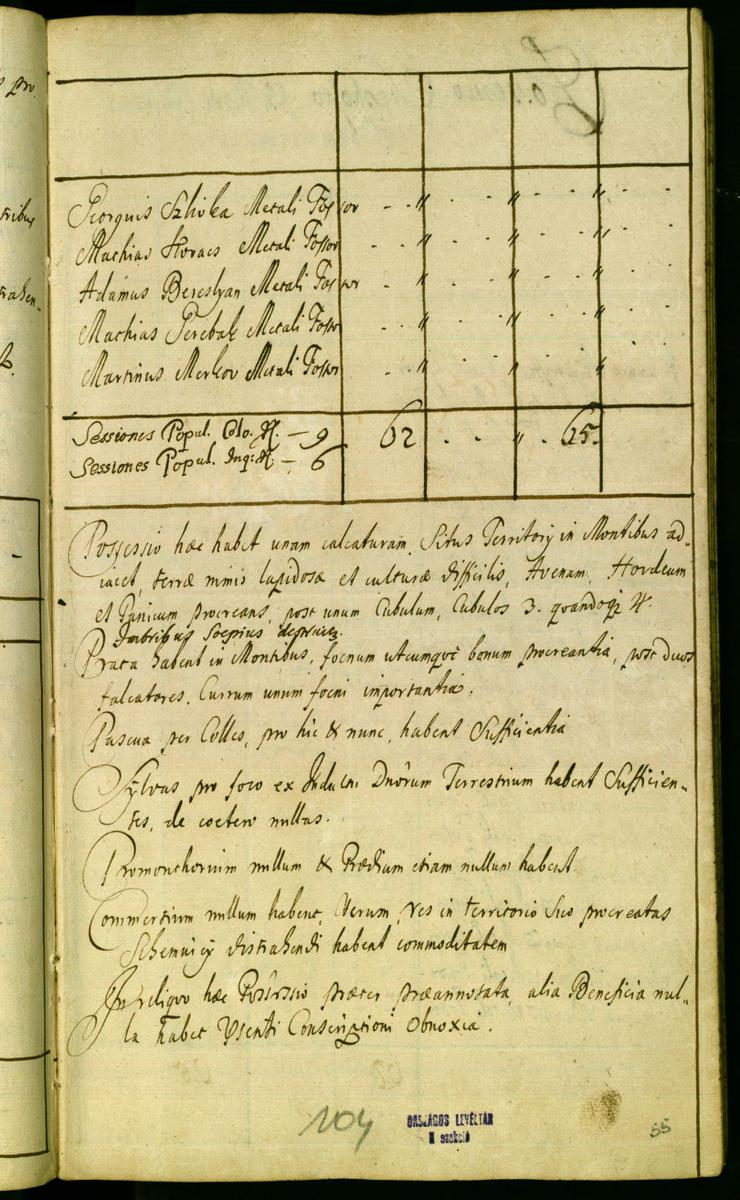 Georguis Szlivka Metali Fossor - - " - - " - - " - -
Mathias Kovacs Metali Fossor - - " - - " - - " - -
Adamus Bereslyan Metali Fossor - " - - " - - " - -
Mathias Gerebak Metali Fossor - - " - - " - - " - -
Martinus Merkov Metali Fossor - - " - - " - - " - -
Sessiones Popul. Colo. – 9 62 - - " - 65.
Sessiones Popul. Inq: – 6
Possessio hæc habet unam calcaturam. Situs Territorÿ in Montibus ad-
iacet, terræ nimis lapidosæ et culturæ difficilis, Avenam, Hordeum
et Panicum procreans, post unum Cubulum, Cubulos 3. quandoq3 4.
Imbribus Soepius
Prata habent in Montibus, foenum utcumqve bonum procreantia, post duos
falcatores. Currum unum foeni importantia.
Pascua per Colles, pro hic & nunc, habent Sufficientia
Sÿlvas pro foco ex Indultu Dnorum Terrestrium habent Sufficien-
tes, de coetero nullas.
Promonthorium nullum & Prædium etiam nullum habent
Commertium nullum habent, Verum, res in territorio Suo procreatas
Schemnicÿ distrahendi habent commoditatem
In reliquo hæc Possessio præter præannotata, alia Beneficia nul-
la habet Usenti Conscriptioni Obnoxia.
104
ORSZÁGOS LEVÉLTÁR
N szekció
55